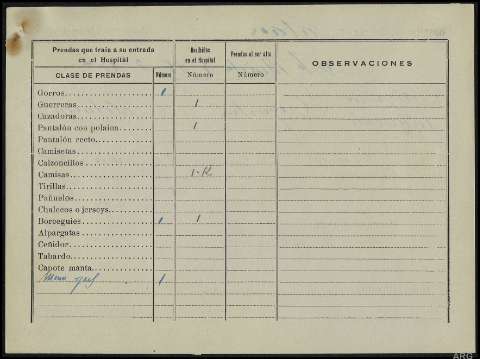 Prendas que traía a su entrada en el Hospital
Recibidas en el Hospital
Prendas al ser Alta
OBSERVACIONES
CLASE DE PRENDAS
Número
Número
Número
Gorros 1
Guerreras 1
Cazadoras
Pantalón con polaina 1
Pantalón recto
Camisetas
Calzoncillos
Camisas 1-R
Tirillas
Pañuelos
Chalecos o jerseys
Borceguíes 1 1
Alpargatas
Ceñidor
Tabardo
Capote manta
Mono 1
ARG